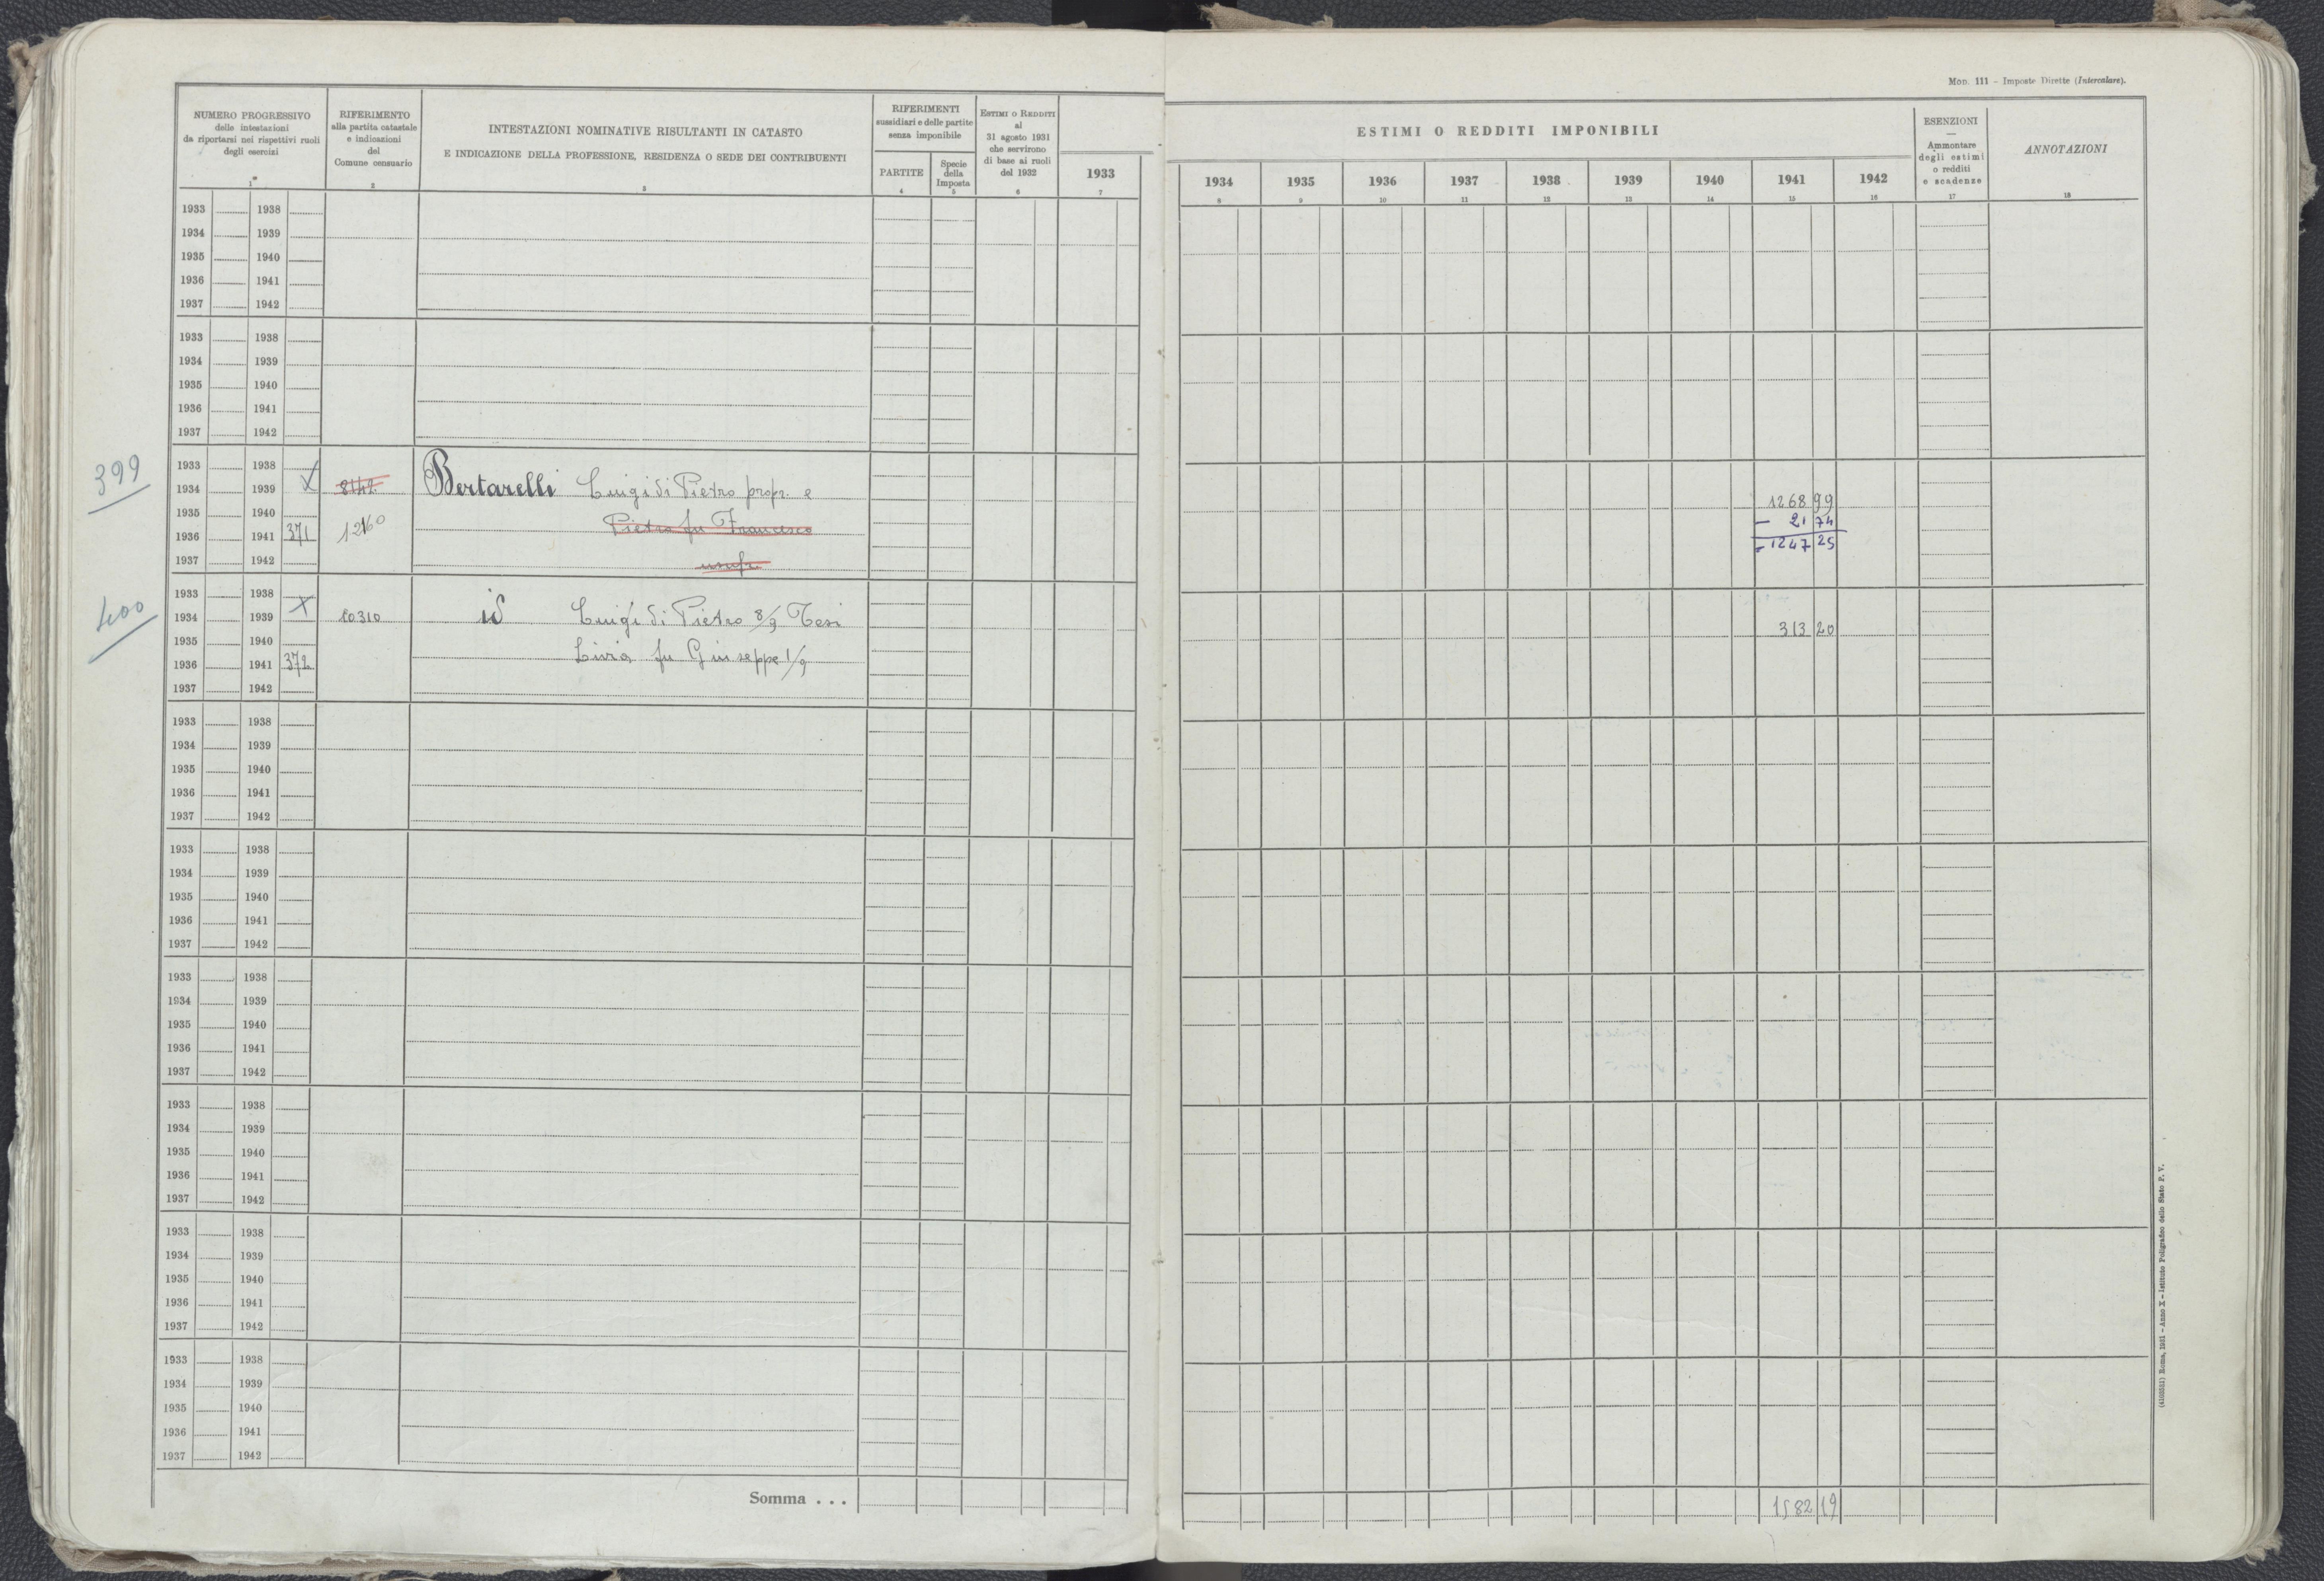 MOD. 111 – Imposte Dirette (Intercalare).
NUMERO PROGRESSIVO
delle intestazioni
da riportarsi nei rispettivi ruoli
degli esercizi
1
RIFERIMENTO
alla partita catastale
e indicazioni
del
Comune censuario
2
INTESTAZIONI NOMINATIVE RISULTANTI IN CATASTO
E INDICAZIONE DELLA PROFESSIONE, RESIDENZA O SEDE DEI CONTRIBUENTI
3
RIFERIMENTI
sussidiari e delle partite
senza imponibile
PARTITE
4
Specie
della
Imposta
5
ESTIMI O REDDITI
al
31 agosto 1931
che servirono
di base ai ruoli
del 1932
6
1933
7
ESTIMI O REDDITI IMPONIBILI
1934 1935 1936 1937 1938 1939 1940 1941 1942
8 9 10 11 12 13 14 15 16
ESENZIONI
—
Ammontare
degli estimi
o redditi
e scadenze
17
ANNOTAZIONI
18
1933 1938
1934 1939
1935 1940
1936 1941
1937 1942
1933 1938
1934 1939
1935 1940
1936 1941
1937 1942
399
1933 1938
1934 1939 X 8142 Bertarelli Luigi di Pietro propr. e 1268 99
1935 1940 1260 Pietro fu Francesco – 21 74
1936 1941 371 = 1247 25
1937 1942 usufr.
400
1933 1938 X
1934 1939 10310 id Luigi di Pietro 8/9 Tesi 313 20
1935 1940
1936 1941 372 Livia fu Giuseppe 1/9
1937 1942
1933 1938
1934 1939
1935 1940
1936 1941
1937 1942
1933 1938
1934 1939
1935 1940
1936 1941
1937 1942
1933 1938
1934 1939
1935 1940
1936 1941
1937 1942
1933 1938
1934 1939
1935 1940
1936 1941
1937 1942
1933 1938
1934 1939
1935 1940
1936 1941
1937 1942
1933 1938
1934 1939
1935 1940
1936 1941
1937 1942
Somma . . . 1582 19
Roma, 1931 – Anno X – Istituto Poligrafico dello Stato P. V.